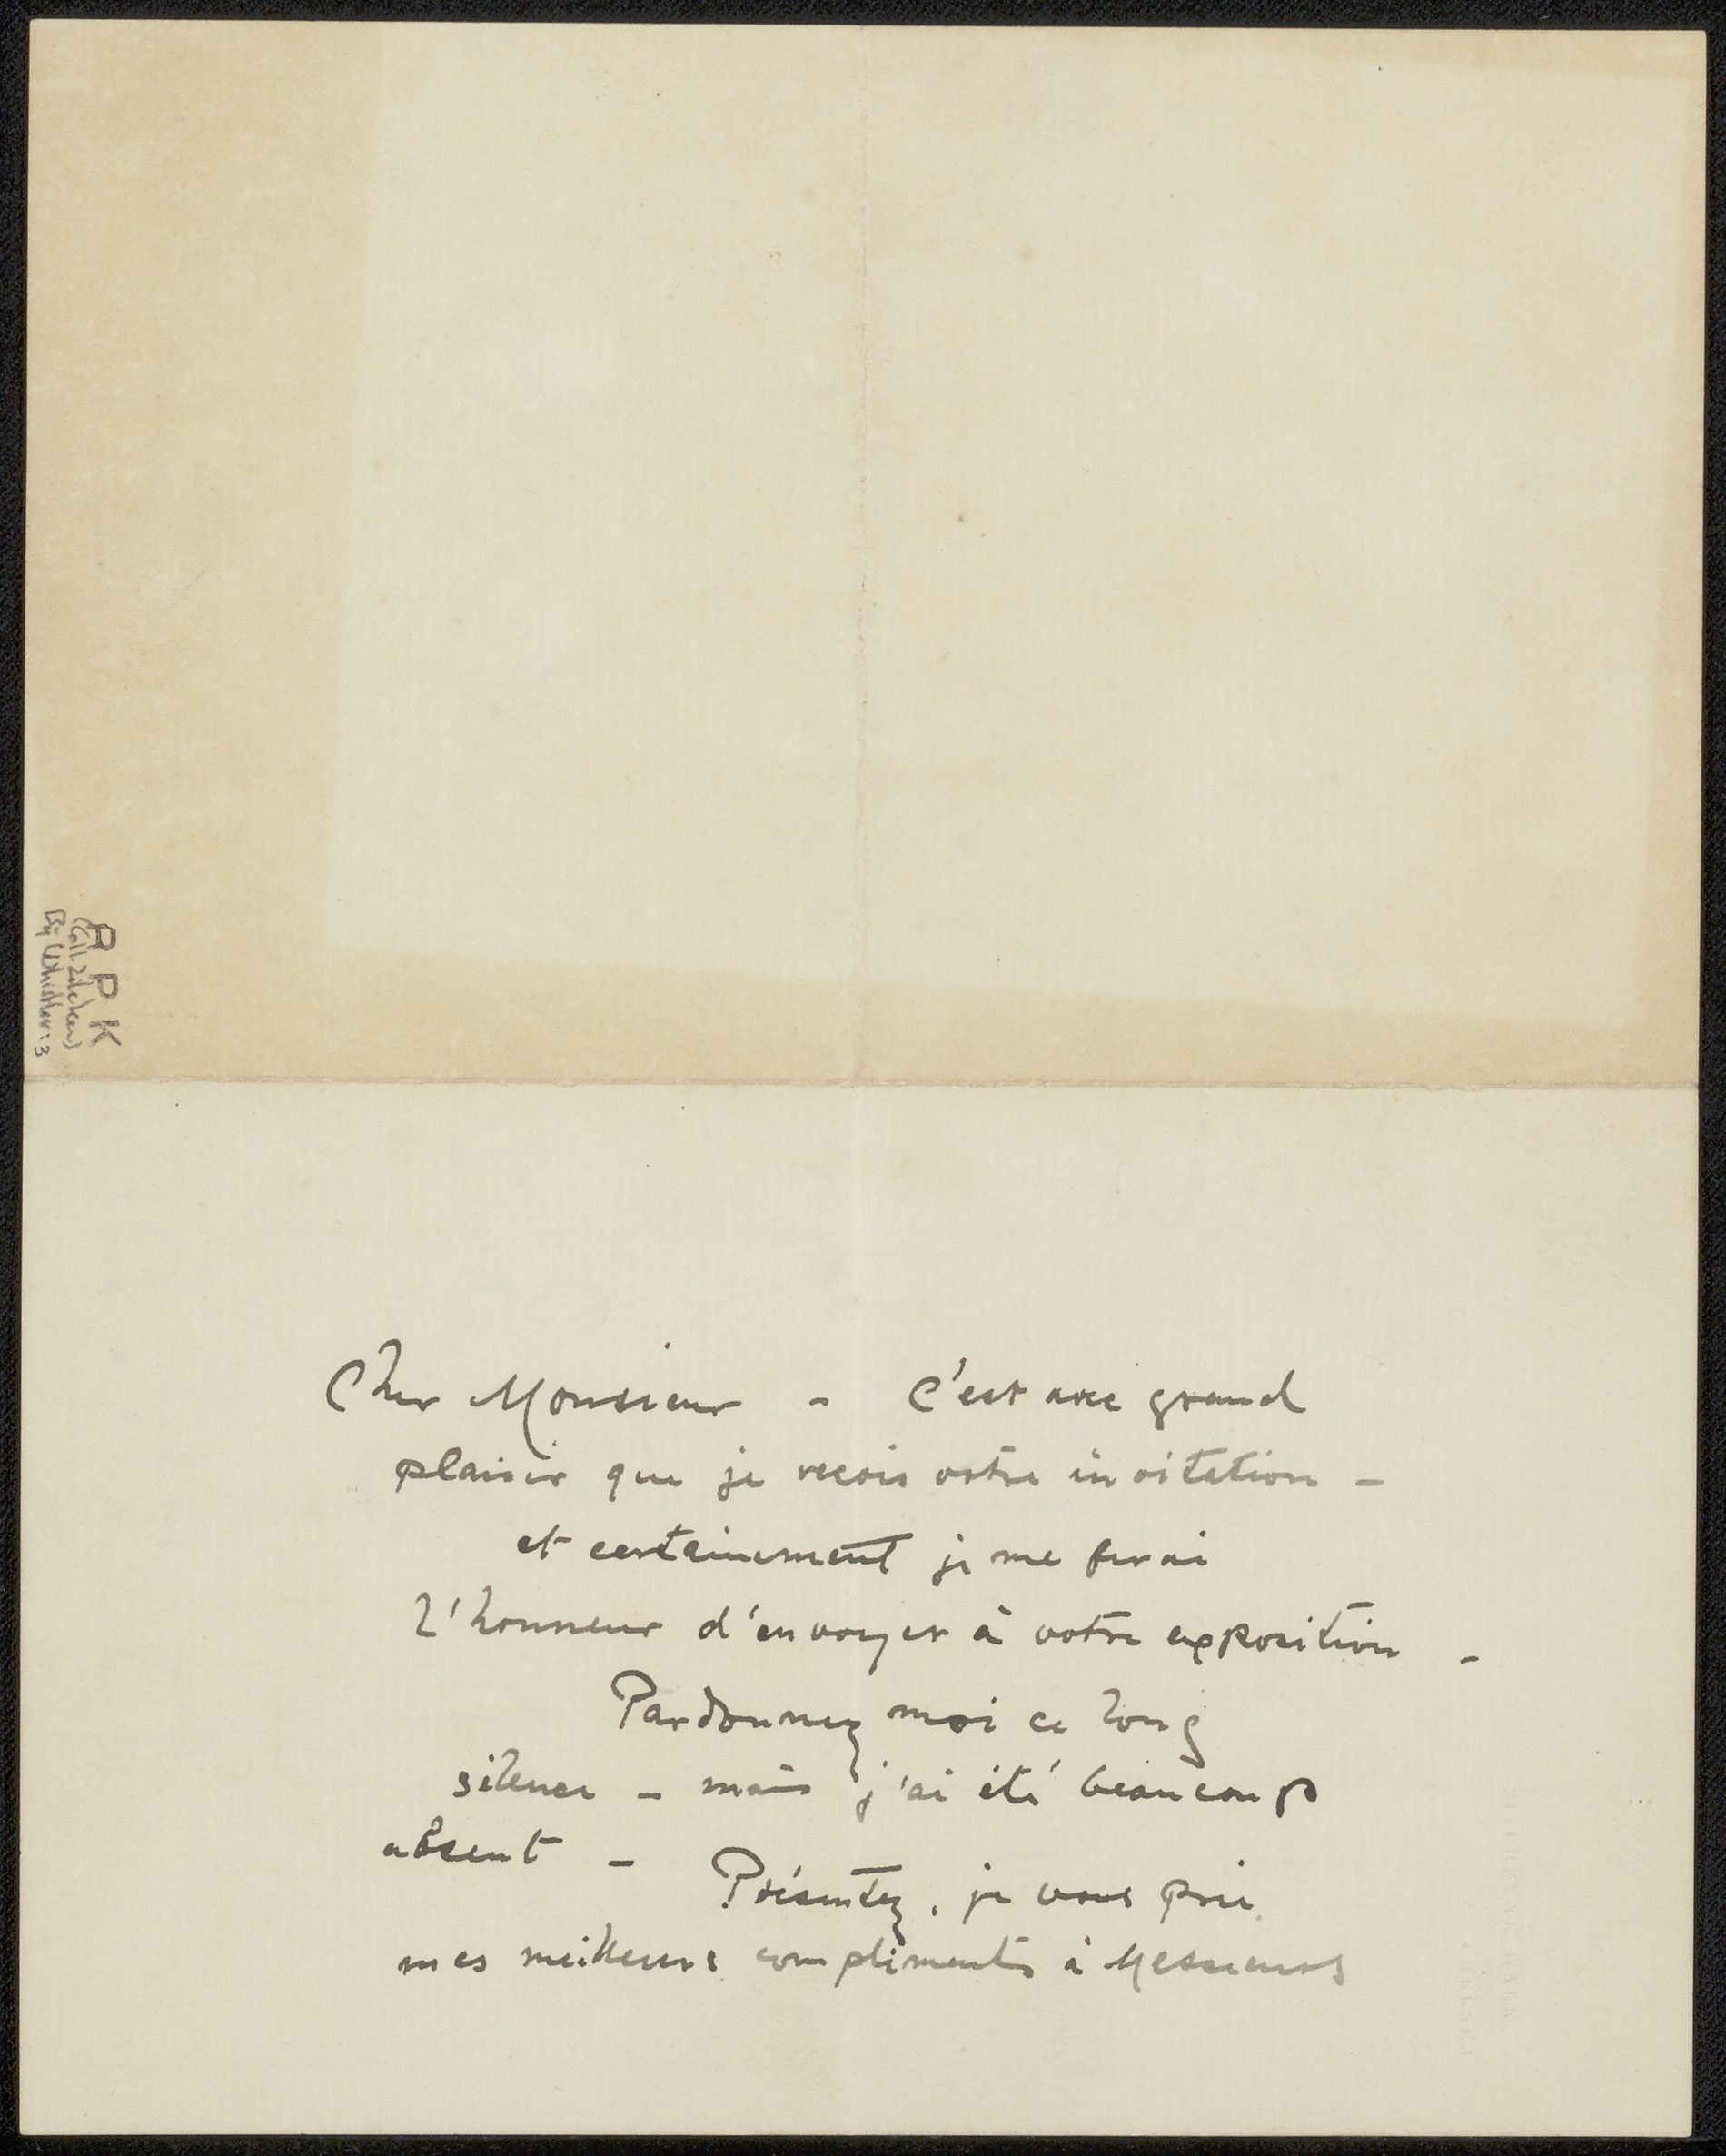 R P K
(Coll. Zilcken)
Bij Whistler: 3
Cher Monsieur - C'est avec grand
plaisir que je reçois votre invitation -
et certainement je me ferai
l'honneur d'envoyer à votre exposition -
Pardonnez moi ce long
silence - mais j'ai été beaucoup
absent -
Présentez, je vous prie
mes meilleurs compliments à Messieurs